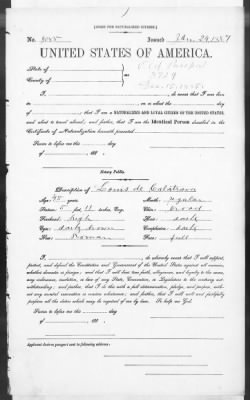 [FORM FOR NATURALIZED CITIZEN.]
No. Issued 1887
UNITED STATES OF AMERICA.
State of
County of
Old Passport
I, do swear that I was born
in on or about the
day of , that I am a NATURALIZED AND LOYAL CITIZEN OF THE UNITED STATES,
and about to travel abroad; and further, that I am the Identical Person described in the
Certificate of Naturalization herewith presented.
Sworn to before me this day
of , 188 .
Notary Public.
Description of Louis de
Age: years. Mouth: regular
Stature: 5 feet 11 inches, Eng. Chin: broad
Forehead: high Hair: dark
Eyes: dark brown Complexion: dark
Nose: Roman Face: full
I, , do solemnly swear that I will support,
protect, and defend the Constitution and Government of the United States against all enemies,
whether domestic or foreign; and that I will bear true faith, allegiance, and loyalty to the same,
any ordinance, resolution, or law of any State, Convention, or Legislature to the contrary not-
withstanding; and further, that I do this with a full determination, pledge, and purpose, with-
out any mental reservation or evasion whatsoever; and further, that I will well and faithfully
perform all the duties which may be required of me by law. So help me God.
Sworn to before me this day
of , 188 .
Applicant desires passport sent to following address: